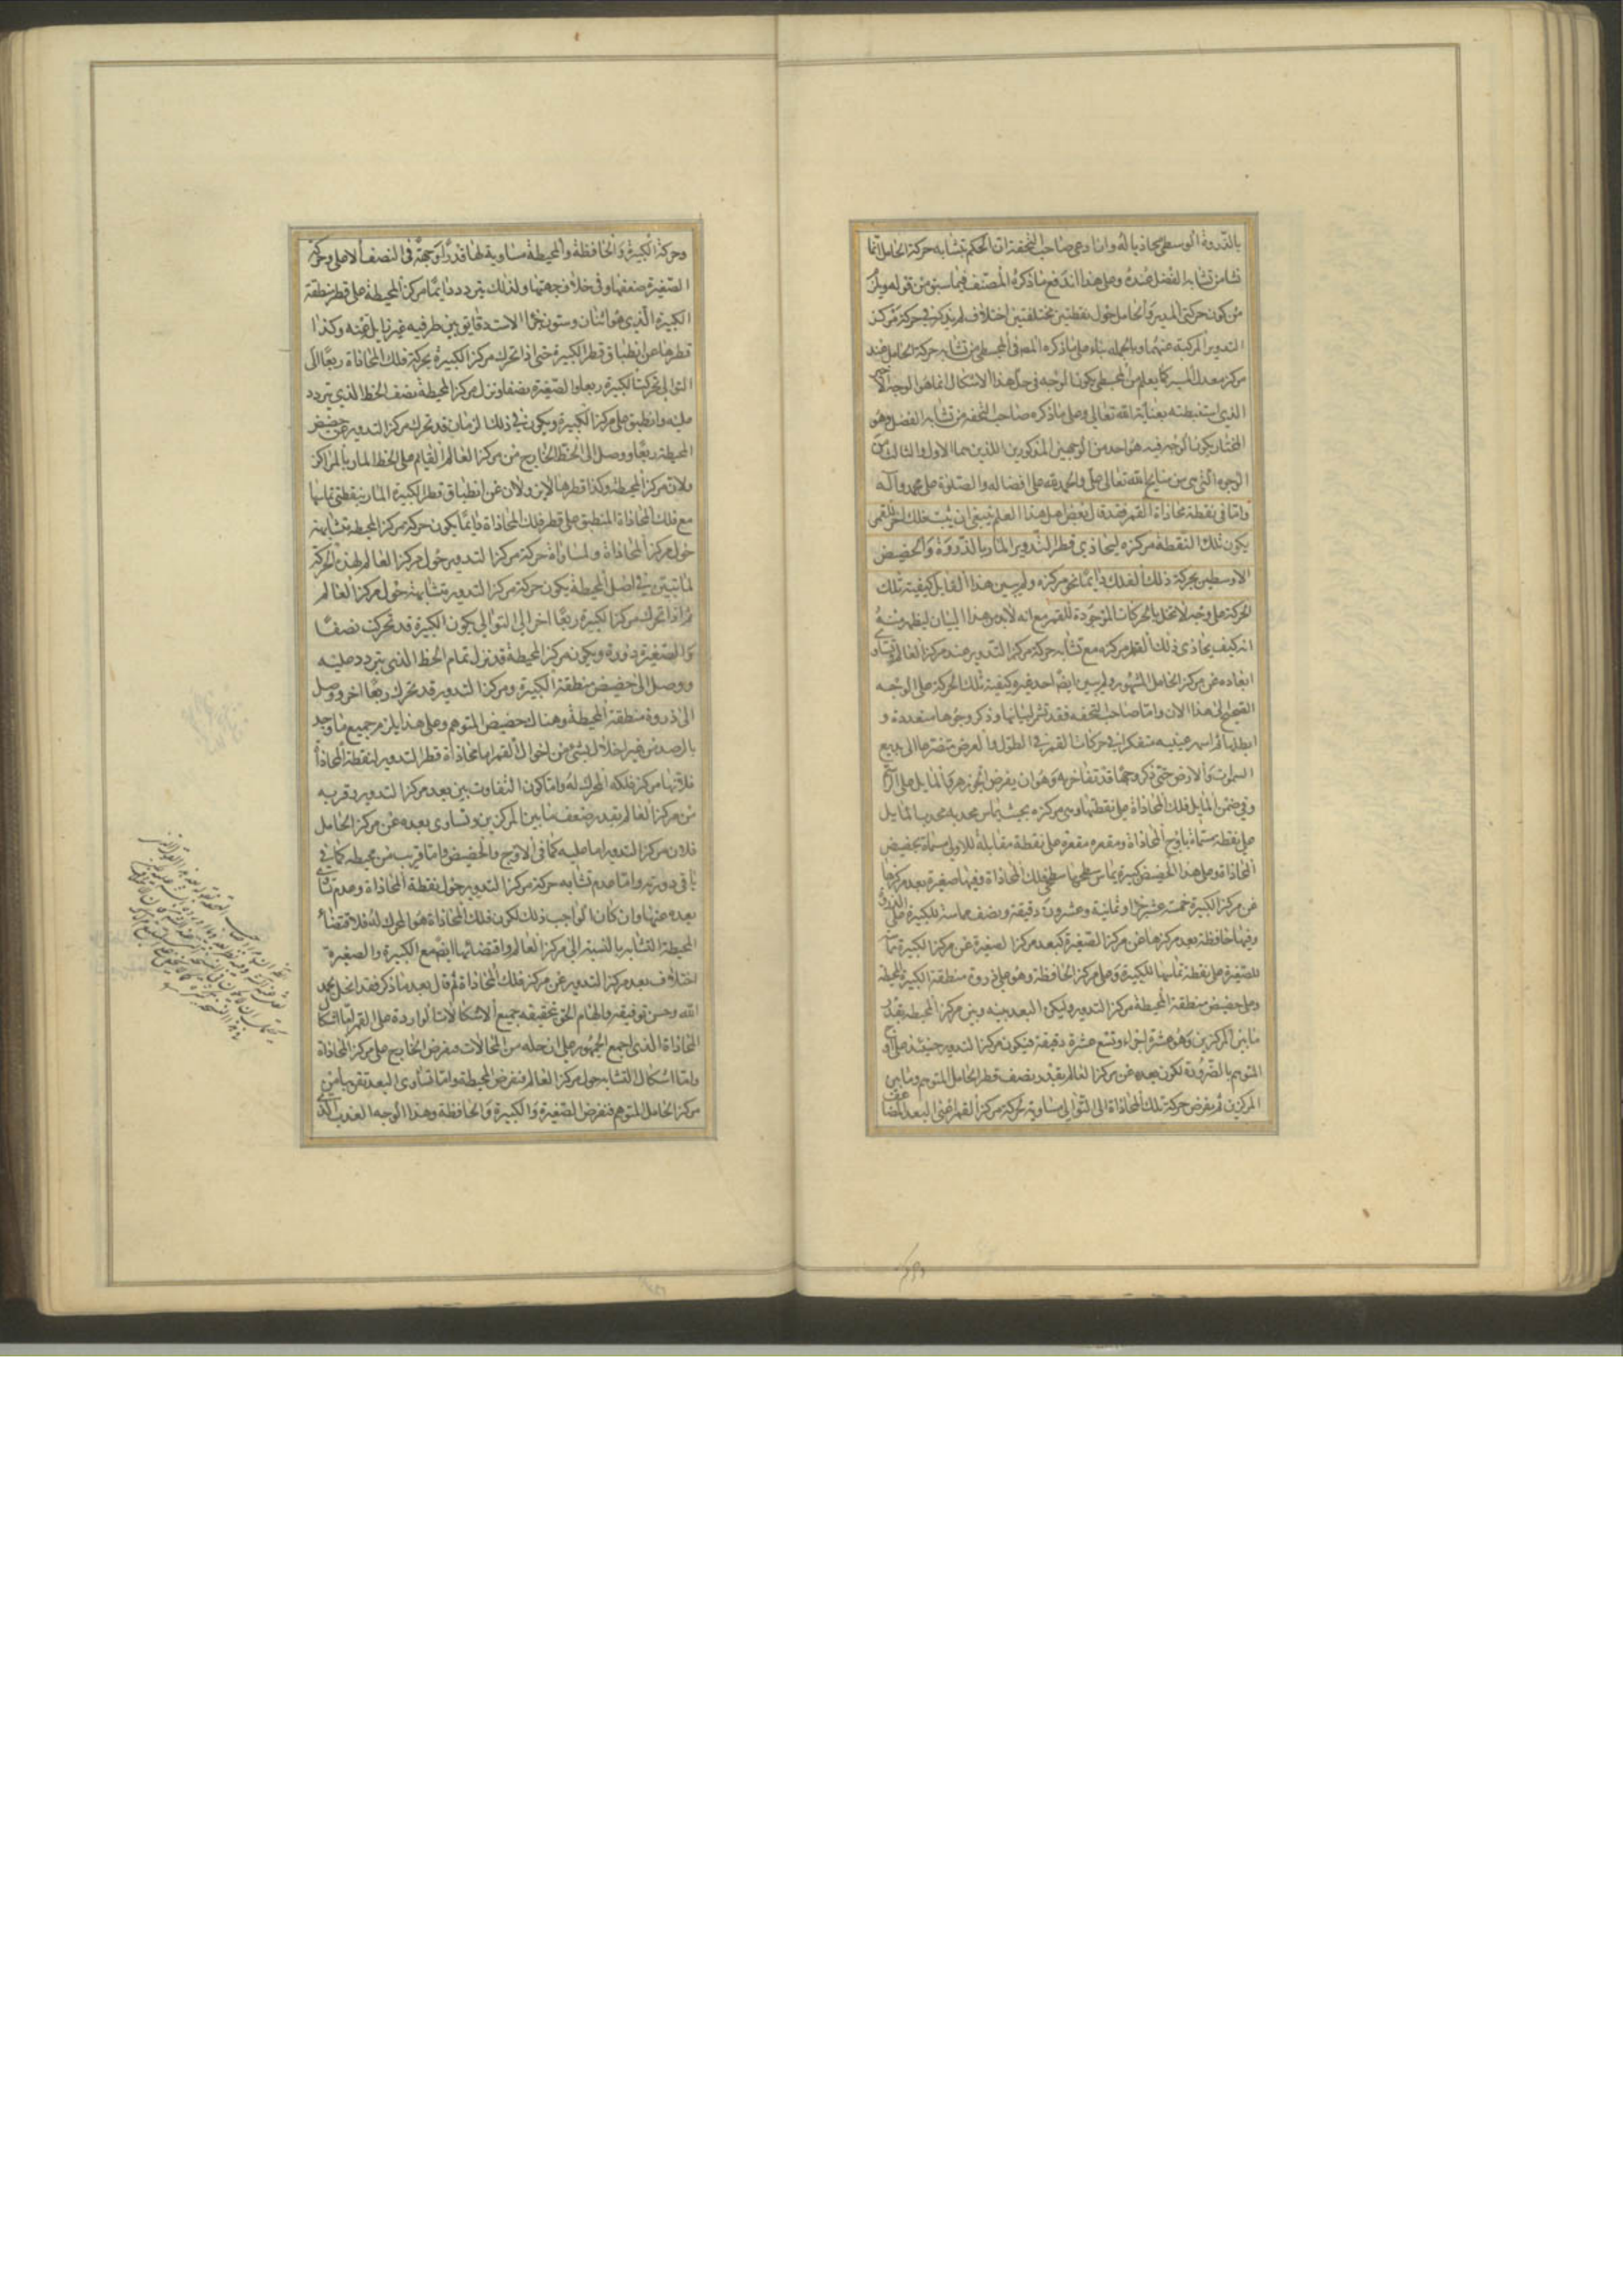 بالذروة الوسطى محاذيا له وان ادعى صاحب التحفة ان الحكم بتشابه حركة الحامل انما
نشا من تشابه الفضل عنده وعلى هذا اندفع ما ذكره المصنف فيما سبق من قوله ويلزم
من كون حركتي المدير والحامل حول نقطتين مختلفتين اختلاف لم يذكر في حركة مركز
التدوير المركبة عنهما وبالجملة بناء على ما ذكره المصـ في المجسطى من تشابه حركة الحامل عند
مركز معدل المسير كما يعلم من المجسطى يكون الوجه في حل هذا الاشكال انما هو الوجه
الذي استنبطته بعناية الله تعالى وعلى ما ذكره صاحب التحفة من تشابه الفضل وهو
المختار يكون الوجه فيه هو احد من الوجهين المذكورين اللذين هما الاول والثالث من
الوجوه التي هي من نتايج الله تعالى على والحمد لله على افضاله والصلوة على محمد وآله
واما في نقطة محاذاة القمر فقد قال بعض اهل هذا العلم ينبغى ان يثبت فلك اخر للقمر
يكون تلك النقطة مركزه ليحاذي قطر التدوير المار بالذروة والحضيض
الاوسطين بحركة ذلك الفلك دايما نحو مركزه ولم يبين هذا القايل كيفية تلك
الحركة على وجه لا تخل بالحركات الموجودة للقمر مع انه لابد من هذا البيان ليظهر منه
انه كيف يحاذى ذلك القطر مركزه مع تشابه حركة مركز التدوير عند مركز العالم وتساوى
ابعاده عن مركز الحامل المشهور ولم يبين ايضا احد غيره كيفية تلك الحركة على الوجه
الصحيح الى هذا الان واما صاحب التحفة فقد تشر لبيانها وذكر وجوها متعددة و
ابطلها ثم اسهر عينيه متفكرا في حركات القمر في الطول والعرض تضرعا الى بديع
السموات والارض حتى ذكر وجها قد تفاخر به وهو ان يفرض الجوزهر والمايل على
وفي ضمن المايل فلك المحاذاة على نقطتها وهي مركزه بحيث يماس محدبه محدب المايل
على نقطة مسماة باوج المحاذاة ومقعره مقعره على نقطة مقابلة للاولى مسماة بحضيض
المحاذاة وعلى هذا الحضيض كبيرة يماس سطحها سطحى فلك المحاذاة وفيها صغيرة بعد مركزها
عن مركز الكبيرة خمسة عشر جزا وثمانية وعشرون دقيقة ونصف مماسة للكبيرة على الذروة
وفيها حافظة بعد مركزها عن مركز الصغيرة كبعد مركز الصغيرة عن مركز الكبيرة
للصغيرة على نقطة تماسها للكبيرة وعلى مركز الحافظة وهو على ذروة منطقة الكبيرة المحيطة
وعلى حضيض منطقة المحيطة مركز التدوير وليكن البعد بينه وبين مركز المحيطة بقدر
ما بين المركزين وهو عشرة اجزاء وتسع عشرة دقيقة فيكون مركز التدوير حينئذ على اوج
المتوهم بالضرورة لكون بعده عن مركز العالم بقدر نصف قطر الحامل المتوهم وما بين
المركزين ثم يفرض حركة فلك المحاذاة الى التوالى مساوية لحركة مركز القمر اعنى البعد المضاعف
وحركة الكبيرة والحافظة والمحيطة مساوية لها قدرا وجهة في النصف الاعلى وحركة
الصغيرة ضعفها وفي خلاف جهتها ولذلك يتردد دايما مركز المحيطة على قطر منطقة
الكبيرة الذي هو اثنان وستون جزا الا ست دقايق بين طرفيه غير زايل عنه وكذا
قطرها عن انطباق قطر الكبيرة حتى اذا تحرك مركز الكبيرة بحركة فلك المحاذاة ربعا الى
التوالى تحركت الكبيرة ربعا والصغيرة نصفا ونزل مركز المحيطة نصف الخط الذي يتردد
عليه وانطبق على مركز الكبيرة ويكون في ذلك الزمان قد تحرك مركز التدوير عن حضيض
المحيطة ربعا ووصل الى الخط الخارج من مركز العالم القايم على الخط المار بالمراكز
ولان مركز المحيطة وكذا قطرها لاين ولان عن انطباق قطر الكبيرة المار بنقطتى تماسها
مع فلك المحاذاة المنطبق على قطر فلك المحاذاة دايما يكون حركة مركز المحيطة متشابهة
حول مركز المحاذاة ولمساواة حركة مركز التدوير حول مركز العالم لهذه الحركة
لما تبين في اصل المحيطة يكون حركة مركز التدوير متشابهة حول مركز العالم
ثم اذا تحرك مركز الكبيرة ربعا اخر الى التوالى يكون الكبيرة قد تحركت نصفا
والصغيرة دورة ويكون مركز المحيطة قد نزل تمام الخط الذي يتردد عليه
ووصل الى حضيض منطقة الكبيرة ومركز التدوير قد تحرك ربعا اخر ووصل
الى ذروة منطقة المحيطة وهناك حضيض المتوهم وعلى هذا يلزم جميع ما وجد
بالرصد من غير اخلال بشئ من احوال القمر اما محاذاة قطر التدوير لنقطة المحاذاة
فلانها مركز فلكه المحرك له واما كون التفاوت بين بعد مركز التدوير وقربه
من مركز العالم بقدر ضعف ما بين المركزين وتساوى بعده عن مركز الحامل
فلان مركز التدوير اما عليه كما في الاوج والحضيض واما قريب من محيطه كما في
باقي دورته واما عدم تشابه حركة مركز التدوير حول نقطة المحاذاة وعدم تساوى
بعده عنها وان كان الواجب ذلك لكون فلك المحاذاة هو المحرك له فلاقتضاء
المحيطة التشابه بالنسبة الى مركز العالم واقتضائها ايضا مع الكبيرة والصغيرة
اختلاف بعد مركز التدوير عن مركز فلك المحاذاة ثم قال بعد ما ذكر فقد انحل بحمد
الله وحسن توفيقه والهام الحق بتحقيقه جميع الاشكالات الواردة على القمر اما اشكال
المحاذاة الذي اجمع الجمهور على ان حله من المحالات فبفرض الخارج على مركز المحاذاة
واما اشكال التشابه حول مركز العالم فبفرض المحيطة واما تساوى البعد تقريبا من
مركز الحامل المتوهم فبفرض الصغيرة والكبيرة والحافظة وهذا الوجه العذب الذي